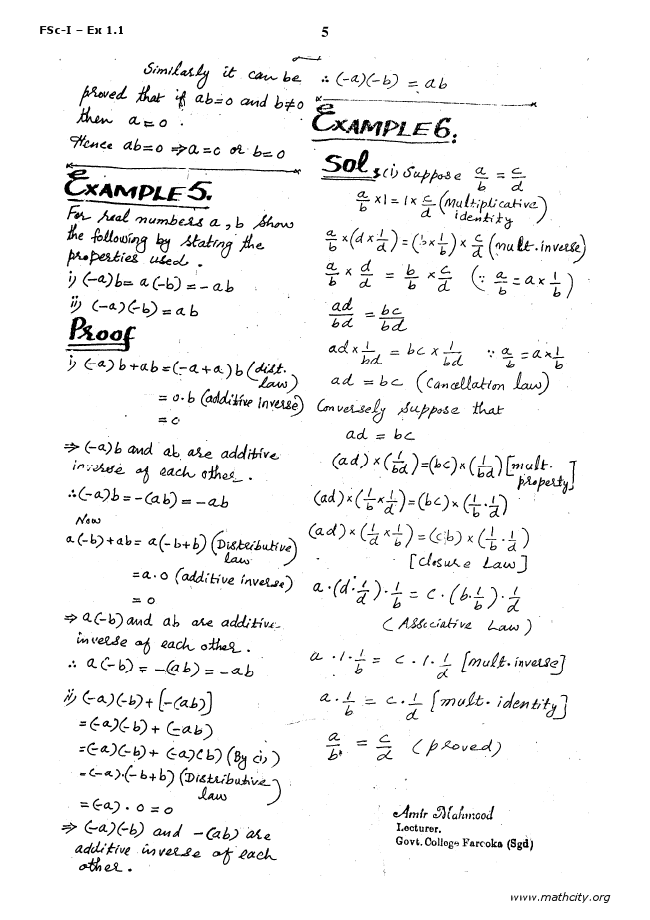 FSc-I – Ex 1.1
5
Similarly it can be
proved that if ab=0 and b≠0
then a=0.
Hence ab=0 ⇒a=0 or b=0
EXAMPLE 5.
For real numbers a, b show
the following by stating the
properties used.
i) (-a)b= a(-b)=-ab
ii) (-a)(-b)=ab
Proof
i) (-a)b+ab=(-a+a)b (dist. law)
=0·b (additive inverse)
=0
⇒ (-a)b and ab are additive
inverse of each other.
∴(-a)b=-(ab)=-ab
Now
a(-b)+ab= a(-b+b) (Distributive law)
=a·0 (additive inverse)
=0
⇒ a(-b) and ab are additive
inverse of each other.
∴ a(-b)=-(ab)=-ab
ii) (-a)(-b)+[-(ab)]
=(-a)(-b)+(-ab)
=(-a)(-b)+(-a)(b) (By (i))
=(-a)·(-b+b) (Distributive law)
=(-a)·0=0
⇒ (-a)(-b) and -(ab) are
additive inverse of each
other.
∴(-a)(-b)=ab
EXAMPLE 6.
Sol: (i) Suppose a/b = c/d
a/b ×1=1× c/d (Multiplicative identity)
a/b ×(d× 1/d)=(b× 1/b)× c/d (mult. inverse)
a/b × d/d = b/b × c/d (∵ a/b =a× 1/b)
ad/bd = bc/bd
ad× 1/bd = bc× 1/bd ∵ a/b =a× 1/b
ad = bc (Cancellation law)
Conversely Suppose that
ad = bc
(ad)×(1/bd)=(bc)×(1/bd) [mult. property]
(ad)×(1/b × 1/d)=(bc)×(1/b · 1/d)
(ad)×(1/d × 1/b)=(cb)×(1/b · 1/d)
[Closure Law]
a·(d· 1/d)· 1/b = c·(b· 1/b)· 1/d
(Associative Law)
a·1· 1/b = c·1· 1/d [mult. inverse]
a· 1/b = c· 1/d [mult. identity]
a/b = c/d (proved)
Amir Mahmood
Lecturer.
Govt. College Farooka (Sgd)
www.mathcity.org